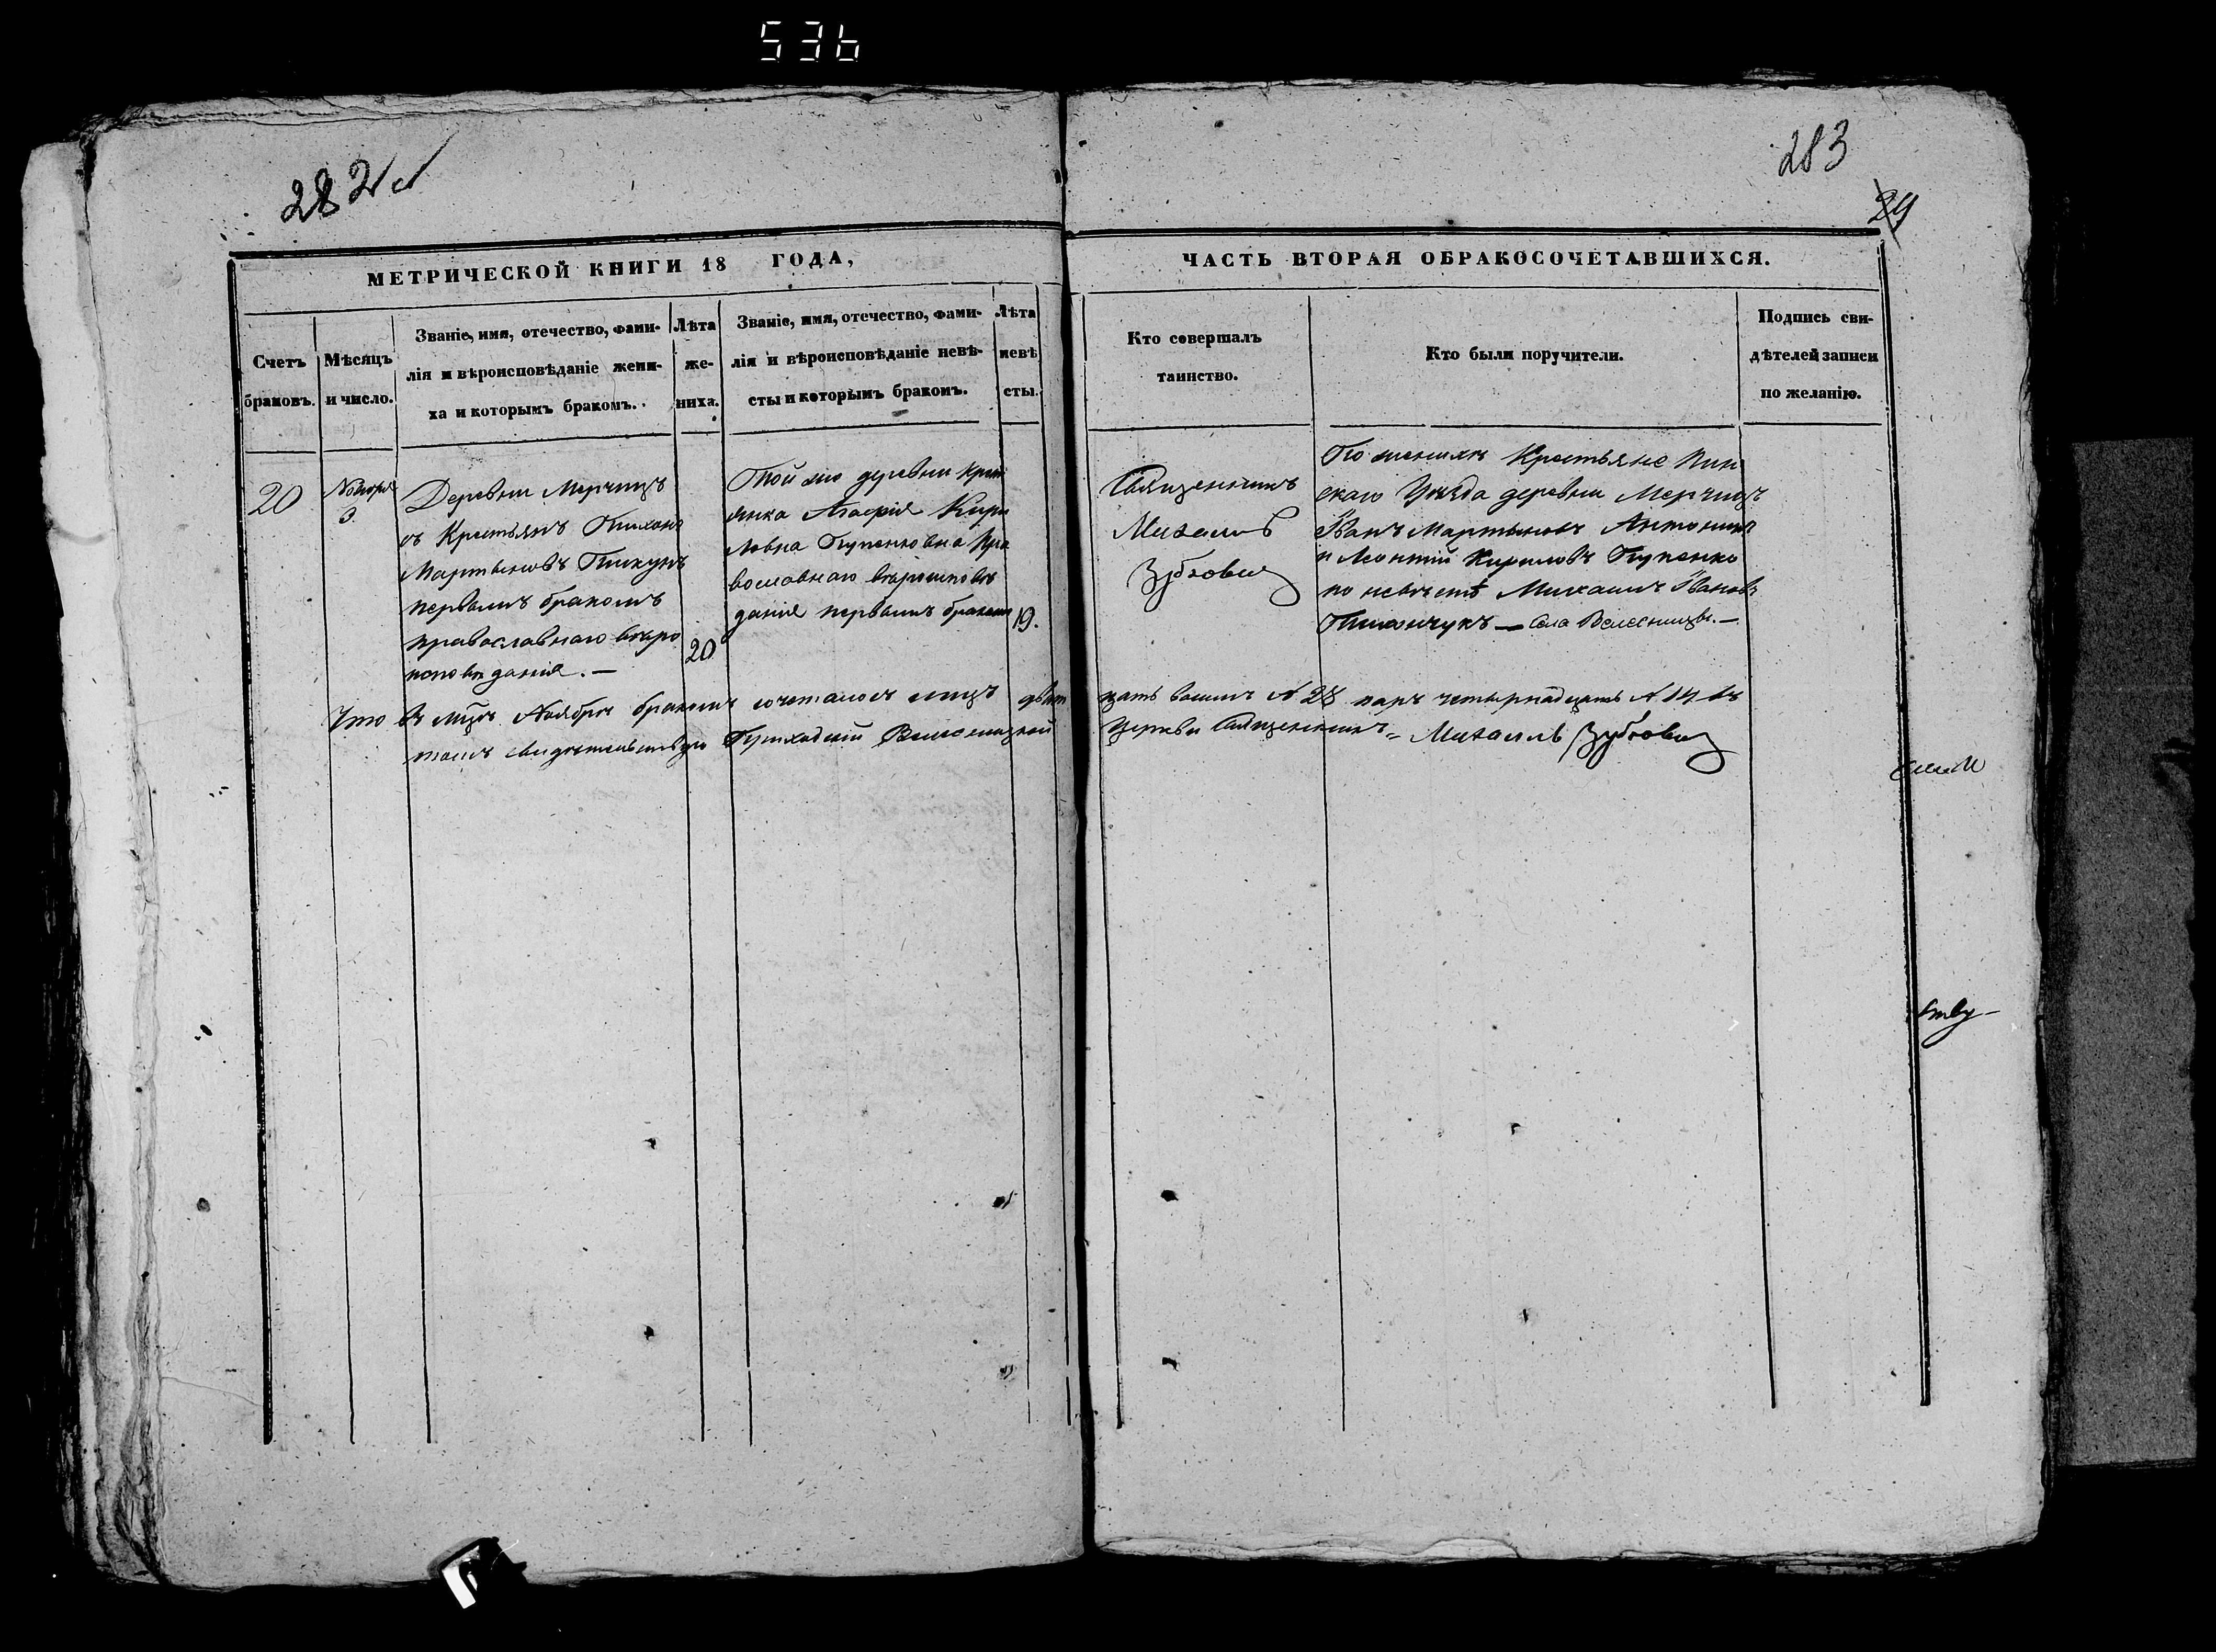 536
282
283
29
МЕТРИЧЕСКОЙ КНИГИ 18 ГОДА,
ЧАСТЬ ВТОРАЯ ОБРАКОСОЧЕТАВШИХСЯ.
Счетъ
браковъ.
Мѣсяцъ
и число.
Званіе, имя, отечество, фами-
лія и вѣроисповѣданіе жени-
ха и которымъ бракомъ.
Лѣта
же-
ниха.
Званіе, имя, отечество, фами-
лія и вѣроисповѣданіе невѣ-
сты и которымъ бракомъ.
Лѣта
невѣ
сты.
Кто совершалъ
таинство.
Кто были поручители.
Подпись сви-
дѣтелей записи
по желанію.
20
Ноября
3.
Деревни Мерчиц
ъ Крестьянъ Тихонъ
Мартыновъ Пикунъ
первымъ бракомъ
православнаго вѣро
исповѣданія. —
20
Той же деревни крест
янка Агафія Кири
ловна Пупенковна Пра
вославнаго вѣроисповѣ
данія первымъ бракомъ
19.
Священникъ
Михаилъ
Зубкович
По женихѣ Крестьяне Пин
скаго Уѣзда деревни Мерчицъ
Иванъ Мартыновъ Антоник
и Леонтій Кириловъ Пупенко
по невѣстѣ Михаилъ Ивановъ
— Села Велесницы. —
Что въ мцѣ Ноябрѣ бракомъ сочеталось лицъ двѣт
цать восимъ № 28 паръ четырнадцать № 14 въ
томъ свидѣтельствую Приходской Велесницкой
Церкви Священникъ Михаилъ Зубкович
ству-